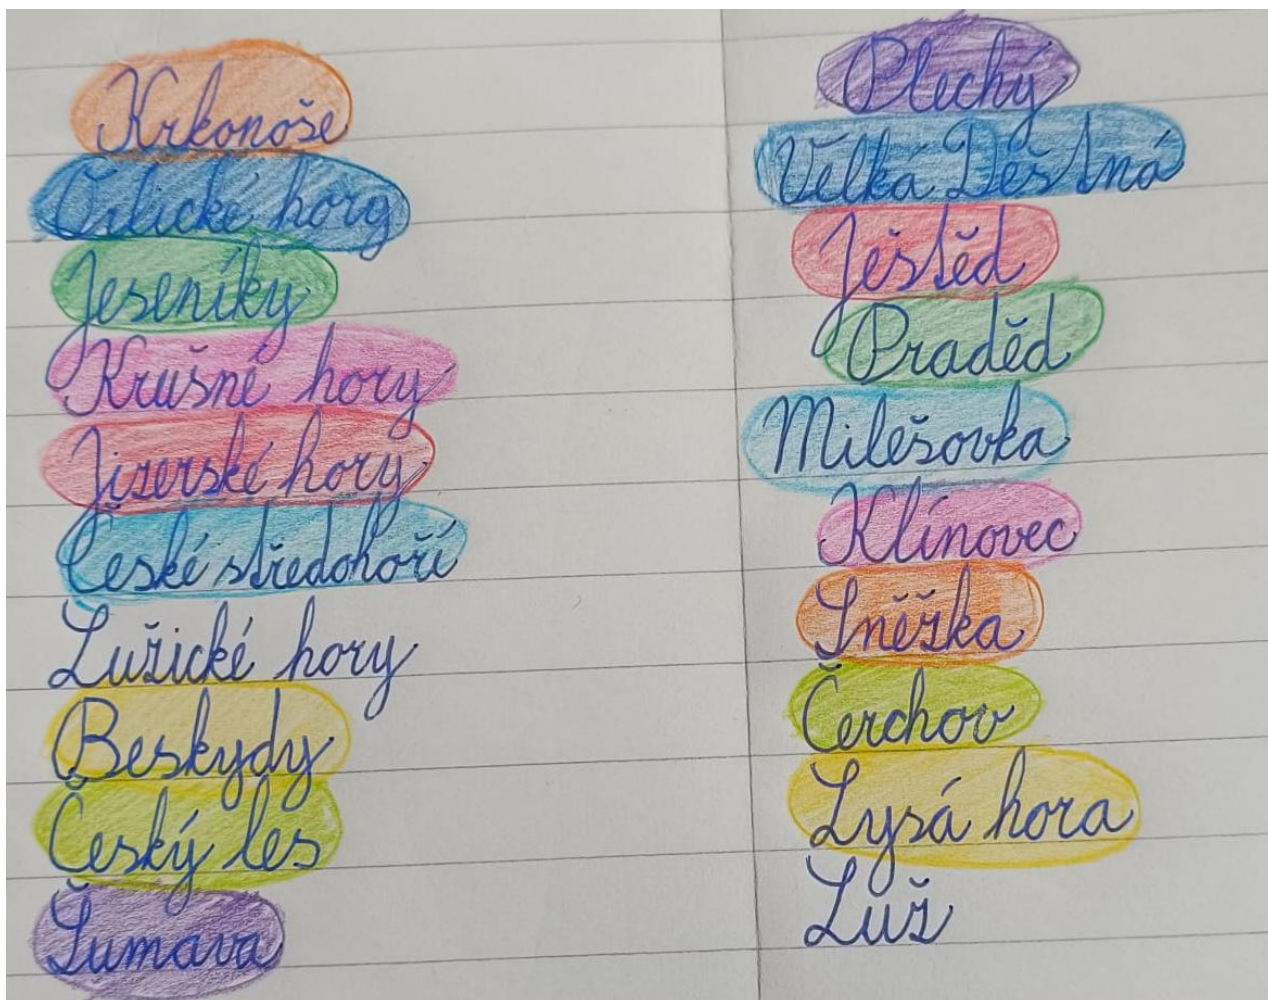 Krkonoše
Orlické hory
Jeseníky
Krušné hory
Jizerské hory
České středohoří
Lužické hory
Beskydy
Český les
Šumava
Plechý
Velká Deštná
Ještěd
Praděd
Milešovka
Klínovec
Sněžka
Čerchov
Lysá hora
Luž